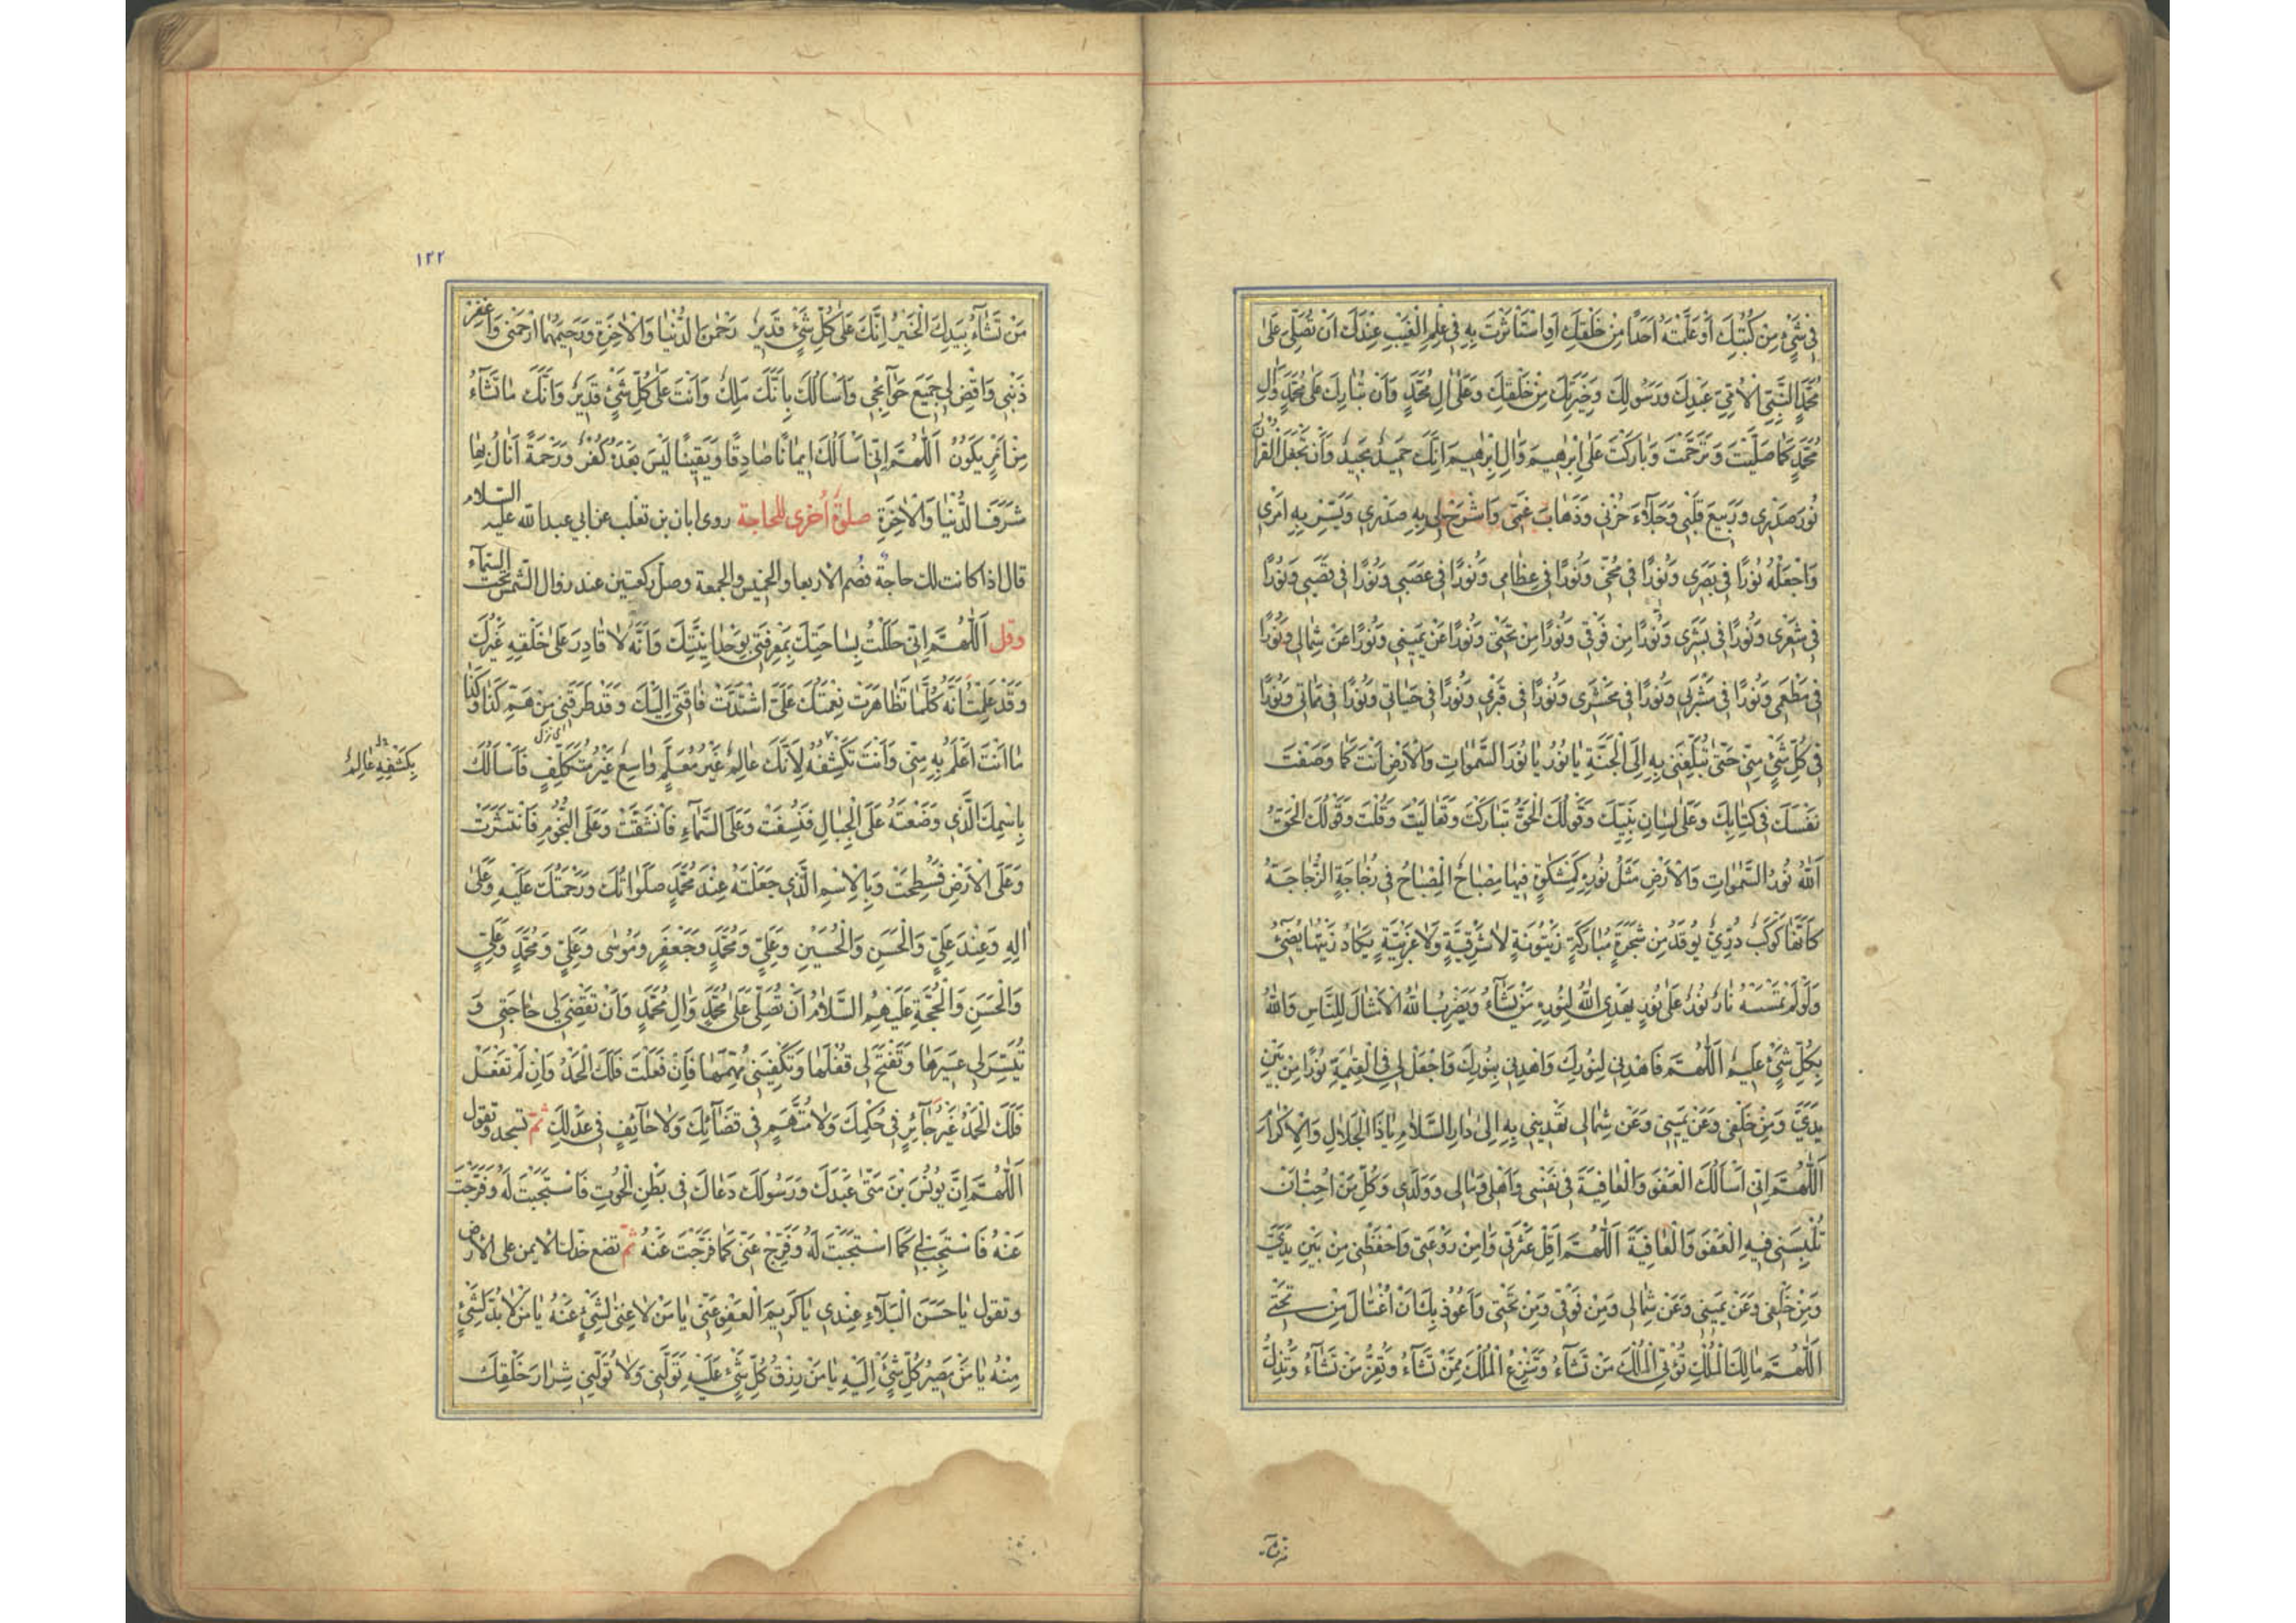 فِي شَيْءٍ مِنْ كُتُبِكَ أَوْ عَلَّمْتَهُ أَحَدًا مِنْ خَلْقِكَ أَوِ اسْتَأْثَرْتَ بِهِ فِي عِلْمِ الْغَيْبِ عِنْدَكَ أَنْ تُصَلِّيَ عَلَى
مُحَمَّدٍ النَّبِيِّ الْأُمِّيِّ عَبْدِكَ وَرَسُولِكَ وَخِيَرَتِكَ مِنْ خَلْقِكَ وَعَلَى آلِ مُحَمَّدٍ وَأَنْ تُبَارِكَ عَلَى مُحَمَّدٍ وَآلِ
مُحَمَّدٍ كَمَا صَلَّيْتَ وَتَرَحَّمْتَ وَبَارَكْتَ عَلَى إِبْرٰهِيمَ وَآلِ إِبْرٰهِيمَ إِنَّكَ حَمِيدٌ مَجِيدٌ وَأَنْ تَجْعَلَ الْقُرْآنَ
نُورَ صَدْرِي وَرَبِيعَ قَلْبِي وَجَلَاءَ حُزْنِي وَذَهَابَ غَمِّي وَاشْرَحْ لِي بِهِ صَدْرِي وَيَسِّرْ بِهِ أَمْرِي
وَاجْعَلْهُ نُورًا فِي بَصَرِي وَنُورًا فِي مُخِّي وَنُورًا فِي عِظَامِي وَنُورًا فِي عَصَبِي وَنُورًا فِي قَصَبِي وَنُورًا
فِي شَعْرِي وَنُورًا فِي بَشَرِي وَنُورًا مِنْ فَوْقِي وَنُورًا مِنْ تَحْتِي وَنُورًا عَنْ يَمِينِي وَنُورًا عَنْ شِمَالِي وَنُورًا
فِي مَطْعَمِي وَنُورًا فِي مَشْرَبِي وَنُورًا فِي مَحْشَرِي وَنُورًا فِي قَبْرِي وَنُورًا فِي حَيَاتِي وَنُورًا فِي مَمَاتِي وَنُورًا
فِي كُلِّ شَيْءٍ مِنِّي حَتَّى تُبَلِّغَنِي بِهِ إِلَى الْجَنَّةِ يَا نُورُ يَا نُورَ السَّمٰوَاتِ وَالْأَرْضِ أَنْتَ كَمَا وَصَفْتَ
نَفْسَكَ فِي كِتَابِكَ وَعَلَى لِسَانِ نَبِيِّكَ وَقَوْلُكَ الْحَقُّ تَبَارَكْتَ وَتَعَالَيْتَ وَقُلْتَ وَقَوْلُكَ الْحَقُّ
اَللهُ نُورُ السَّمٰوَاتِ وَالْأَرْضِ مَثَلُ نُورِهِ كَمِشْكٰوةٍ فِيهَا مِصْبَاحٌ الْمِصْبَاحُ فِي زُجَاجَةٍ الزُّجَاجَةُ
كَأَنَّهَا كَوْكَبٌ دُرِّيٌّ يُوقَدُ مِنْ شَجَرَةٍ مُبَارَكَةٍ زَيْتُونَةٍ لَا شَرْقِيَّةٍ وَلَا غَرْبِيَّةٍ يَكَادُ زَيْتُهَا يُضِيءُ
وَلَوْ لَمْ تَمْسَسْهُ نَارٌ نُورٌ عَلَى نُورٍ يَهْدِي اللهُ لِنُورِهِ مَنْ يَشَاءُ وَيَضْرِبُ اللهُ الْأَمْثَالَ لِلنَّاسِ وَاللهُ
بِكُلِّ شَيْءٍ عَلِيمٌ اَللّٰهُمَّ فَاهْدِنِي لِنُورِكَ وَاهْدِنِي بِنُورِكَ وَاجْعَلْ لِي فِي الْقِيٰمَةِ نُورًا مِنْ بَيْنِ
يَدَيَّ وَمِنْ خَلْفِي وَعَنْ يَمِينِي وَعَنْ شِمَالِي تَهْدِينِي بِهِ إِلَى دَارِ السَّلَامِ يَا ذَا الْجَلَالِ وَالْإِكْرَامِ
اَللّٰهُمَّ إِنِّي أَسْأَلُكَ الْعَفْوَ وَالْعَافِيَةَ فِي نَفْسِي وَأَهْلِي وَمَالِي وَوَلَدِي وَكُلِّ مَنْ أُحِبُّ أَنْ
تُلْبِسَنِي فِيهِ الْعَفْوَ وَالْعَافِيَةَ اَللّٰهُمَّ أَقِلْ عَثْرَتِي وَآمِنْ رَوْعَتِي وَاحْفَظْنِي مِنْ بَيْنِ يَدَيَّ
وَمِنْ خَلْفِي وَعَنْ يَمِينِي وَعَنْ شِمَالِي وَمِنْ فَوْقِي وَمِنْ تَحْتِي وَأَعُوذُ بِكَ أَنْ أُغْتَالَ مِنْ تَحْتِي
اَللّٰهُمَّ مَالِكَ الْمُلْكِ تُؤْتِي الْمُلْكَ مَنْ تَشَاءُ وَتَنْزِعُ الْمُلْكَ مِمَّنْ تَشَاءُ وَتُعِزُّ مَنْ تَشَاءُ وَتُذِلُّ
١٢٢
مَنْ تَشَاءُ بِيَدِكَ الْخَيْرُ إِنَّكَ عَلَى كُلِّ شَيْءٍ قَدِيرٌ رَحْمٰنَ الدُّنْيَا وَالْآخِرَةِ وَرَحِيمَهُمَا ارْحَمْنِي وَاغْفِرْ
ذَنْبِي وَاقْضِ لِي جَمِيعَ حَوَائِجِي وَأَسْأَلُكَ بِأَنَّكَ مَلِكٌ وَأَنْتَ عَلَى كُلِّ شَيْءٍ قَدِيرٌ وَأَنَّكَ مَا تَشَاءُ
مِنْ أَمْرٍ يَكُونُ اَللّٰهُمَّ إِنِّي أَسْأَلُكَ إِيمَانًا صَادِقًا وَيَقِينًا لَيْسَ بَعْدَهُ كُفْرٌ وَرَحْمَةً أَنَالُ بِهَا
شَرَفَ الدُّنْيَا وَالْآخِرَةِ صلوة أخرى للحاجة روى ابان بن تغلب عن ابي عبد الله عليه السلام
قال اذا كانت لك حاجة فصم الاربعا والخميس والجمعة وصل ركعتين عند زوال الشمس تحت السماء
وقل اَللّٰهُمَّ إِنِّي حَلَلْتُ بِسَاحَتِكَ بِمَعْرِفَتِي بِوَحْدَانِيَّتِكَ وَأَنَّهُ لَا قَادِرَ عَلَى خَلْقِهِ غَيْرُكَ
وَقَدْ عَلِمْتُ أَنَّهُ كُلَّمَا تَظَاهَرَتْ نِعْمَتُكَ عَلَيَّ اشْتَدَّتْ فَاقَتِي إِلَيْكَ وَقَدْ طَرَقَنِي مِنْ هَمِّ كَذَا وَكَذَا
مَا أَنْتَ أَعْلَمُ بِهِ مِنِّي وَأَنْتَ تَكْشِفُهُ لِأَنَّكَ عَالِمٌ غَيْرُ مُعَلَّمٍ وَاسِعٌ غَيْرُ مُتَكَلِّفٍ فَأَسْأَلُكَ
بِكَشْفِهِ عَالِمٌ
بِاسْمِكَ الَّذِي وَضَعْتَهُ عَلَى الْجِبَالِ فَنُسِفَتْ وَعَلَى السَّمَاءِ فَانْشَقَّتْ وَعَلَى النُّجُومِ فَانْتَثَرَتْ
وَعَلَى الْأَرْضِ فَسُطِحَتْ وَبِالْإِسْمِ الَّذِي جَعَلْتَهُ عِنْدَ مُحَمَّدٍ صَلَوَاتُكَ وَرَحْمَتُكَ عَلَيْهِ وَعَلَى
آلِهِ وَعِنْدَ عَلِيٍّ وَالْحَسَنِ وَالْحُسَيْنِ وَعَلِيٍّ وَمُحَمَّدٍ وَجَعْفَرٍ وَمُوسَى وَعَلِيٍّ وَمُحَمَّدٍ وَعَلِيٍّ
وَالْحَسَنِ وَالْحُجَّةِ عَلَيْهِمُ السَّلَامُ أَنْ تُصَلِّيَ عَلَى مُحَمَّدٍ وَآلِ مُحَمَّدٍ وَأَنْ تَقْضِيَ لِي حَاجَتِي وَ
تُيَسِّرَ لِي عَسِيرَهَا وَتَفْتَحَ لِي قُفْلَهَا وَتَكْفِيَنِي مُهِمَّهَا فَإِنْ فَعَلْتَ فَلَكَ الْحَمْدُ وَإِنْ لَمْ تَفْعَلْ
فَلَكَ الْحَمْدُ غَيْرَ جَائِرٍ فِي حُكْمِكَ وَلَا مُتَّهَمٍ فِي قَضَائِكَ وَلَا حَائِفٍ فِي عَدْلِكَ ثمّ تسجد وتقول
اَللّٰهُمَّ إِنَّ يُونُسَ بْنَ مَتَّى عَبْدَكَ وَرَسُولَكَ دَعَاكَ فِي بَطْنِ الْحُوتِ فَاسْتَجَبْتَ لَهُ وَفَرَّجْتَ
عَنْهُ فَاسْتَجِبْ لِي كَمَا اسْتَجَبْتَ لَهُ وَفَرِّجْ عَنِّي كَمَا فَرَّجْتَ عَنْهُ ثمّ تضع خدك الايمن على الارض
وتقول يَا حَسَنَ الْبَلَاءِ عِنْدِي يَا كَرِيمَ الْعَفْوِ عَنِّي يَا مَنْ لَا غِنَى لِشَيْءٍ عَنْهُ يَا مَنْ لَا بُدَّ لِشَيْءٍ
مِنْهُ يَا مَنْ مَصِيرُ كُلِّ شَيْءٍ إِلَيْهِ يَا مَنْ رِزْقُ كُلِّ شَيْءٍ عَلَيْهِ تَوَلَّنِي وَلَا تُوَلِّنِي شِرَارَ خَلْقِكَ